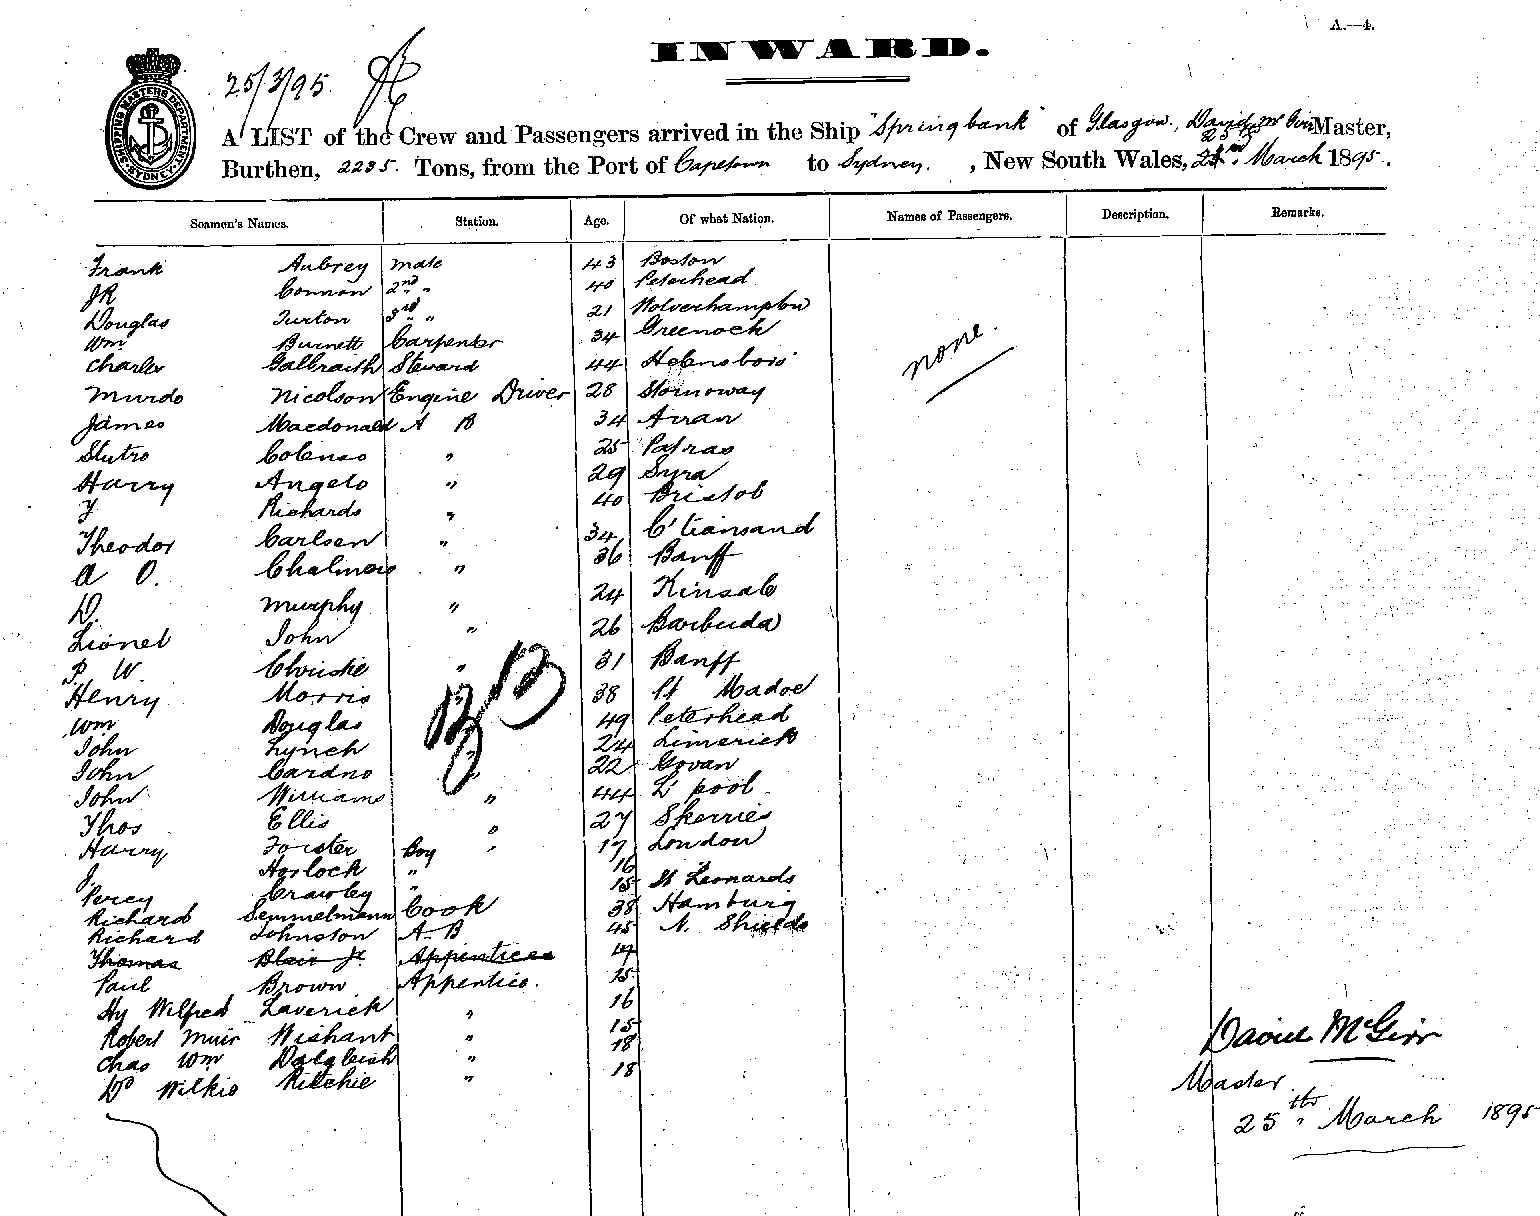 A.—4.
INWARD.
SHIPPING MASTERS DEPARTMENT SYDNEY
25/3/95
A LIST of the Crew and Passengers arrived in the Ship "Springbank" of Glasgow, David McGirr Master,
Burthen, 2235. Tons, from the Port of Capetown to Sydney. , New South Wales, March 1895.
Seamen's Names. Station. Age. Of what Nation. Names of Passengers. Description. Remarks.
Frank Aubrey Mate 43 Boston
JR Connon 2nd " 40 Peterhead
Douglas Turton 3rd " 21 Wolverhampton
Wm Burnett Carpenter 34 Greenock
none.
Charles Galbraith Steward 44 Helensboro'
Murdo Nicolson Engine Driver 28 Stornoway
James Macdonald A B 34 Arran
Colenso " 25 Patras
Harry Angelo " 29 Syra
Richards " 40 Bristol
Theodor Carlsen " 34 C'tiansand
A O. Chalmers " 36 Banff
D. Murphy " 24 Kinsale
Lionel John " 26 Barbuda
P. W. Christie " 31 Banff
Henry Morris " 38 Pt Madoc
Wm Douglas 49 Peterhead
John Lynch " 24 Limerick
John Cardno " 22 Govan
John Williams " 44 L'pool
Thos Ellis " 27 Skerries
Harry Forster Boy " 17 London
J. Horlock " 16
Percy Crawley " 15 St Leonards
Richard Semmelmann Cook 38 Hamburg
Richard Johnston A.B 45 N. Shields
Thomas Blair Jr Apprentice
Paul Brown Appentice. 15
Hy Wilfred Laverick " 16
Robert Muir Wishart " 15
Chas Wm Dalgleish " 18
Wilkie Ritchie " 18
David McGirr
Master
25th March 1895